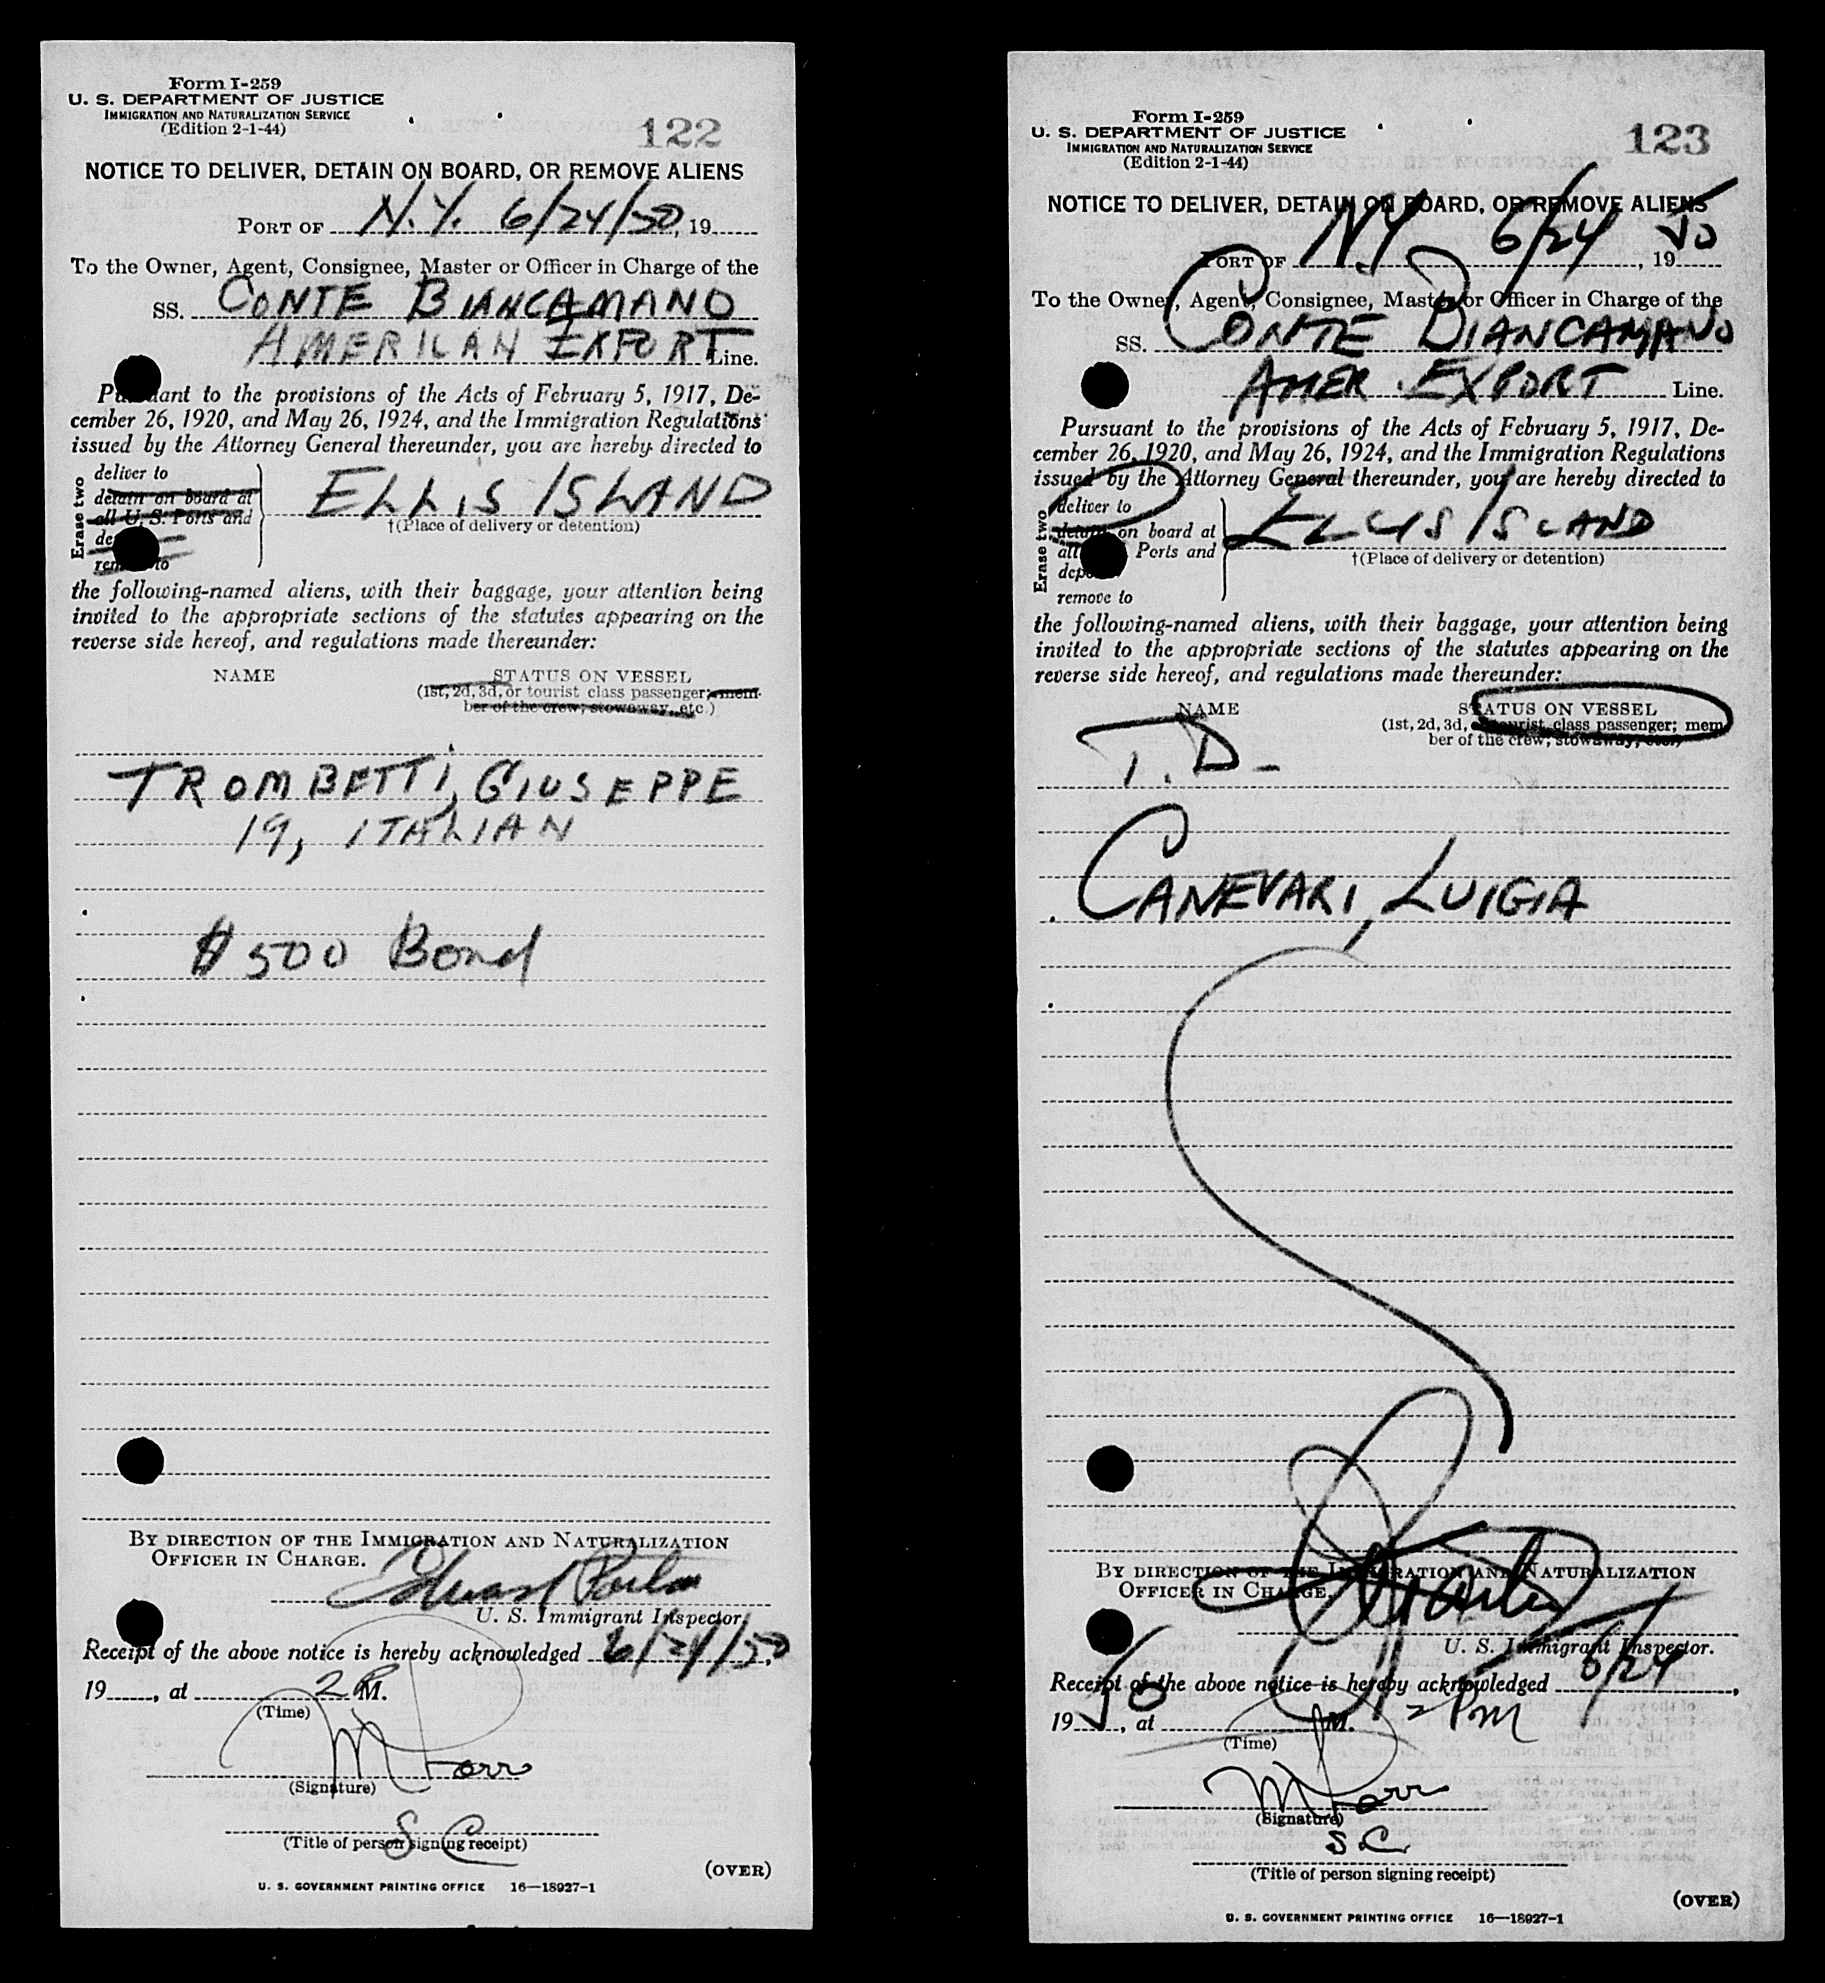 Form I-259
U. S. DEPARTMENT OF JUSTICE
IMMIGRATION AND NATURALIZATION SERVICE
(Edition 2-1-44)
122
NOTICE TO DELIVER, DETAIN ON BOARD, OR REMOVE ALIENS
PORT OF N.Y. 6/24/50, 19
To the Owner, Agent, Consignee, Master or Officer in Charge of the
SS. CONTE BIANCAMANO
AMERICAN EXPORT Line.
Pursuant to the provisions of the Acts of February 5, 1917, De-
cember 26, 1920, and May 26, 1924, and the Immigration Regulations
issued by the Attorney General thereunder, you are hereby directed to
Erase two
deliver to
detain on board at
all U. S. Ports and
de
remove to
ELLIS ISLAND
†(Place of delivery or detention)
the following-named aliens, with their baggage, your attention being
invited to the appropriate sections of the statutes appearing on the
reverse side hereof, and regulations made thereunder:
NAME STATUS ON VESSEL
(1st, 2d, 3d, or tourist class passenger; mem-
ber of the crew; stowaway, etc.)
TROMBETTI, GIUSEPPE
19, ITALIAN
$500 Bond
BY DIRECTION OF THE IMMIGRATION AND NATURALIZATION
OFFICER IN CHARGE.
Edward
U. S. Immigrant Inspector.
Receipt of the above notice is hereby acknowledged 6/24/50,
19, at 2 P M.
(Time)
(Signature)
S C
(Title of person signing receipt)
(OVER)
U. S. GOVERNMENT PRINTING OFFICE 16—18927-1
Form I-259
U. S. DEPARTMENT OF JUSTICE
IMMIGRATION AND NATURALIZATION SERVICE
(Edition 2-1-44)
123
NOTICE TO DELIVER, DETAIN ON BOARD, OR REMOVE ALIENS
PORT OF N.Y. 6/24, 19 50
To the Owner, Agent, Consignee, Master or Officer in Charge of the
SS. CONTE BIANCAMANO
AMER. EXPORT Line.
Pursuant to the provisions of the Acts of February 5, 1917, De-
cember 26, 1920, and May 26, 1924, and the Immigration Regulations
issued by the Attorney General thereunder, you are hereby directed to
Erase two
deliver to
detain on board at
all Ports and
depo
remove to
ELLIS ISLAND
†(Place of delivery or detention)
the following-named aliens, with their baggage, your attention being
invited to the appropriate sections of the statutes appearing on the
reverse side hereof, and regulations made thereunder:
NAME STATUS ON VESSEL
(1st, 2d, 3d, or tourist class passenger; mem
ber of the crew; stowaway, etc.)
T.D-
CANEVARI, LUIGIA
BY DIRECTION OF THE IMMIGRATION AND NATURALIZATION
OFFICER IN CHARGE.
U. S. Immigrant Inspector.
Receipt of the above notice is hereby acknowledged 6/24,
19 50, at M. 2 PM
(Time)
(Signature)
S C
(Title of person signing receipt)
(OVER)
U. S. GOVERNMENT PRINTING OFFICE 16—18927-1